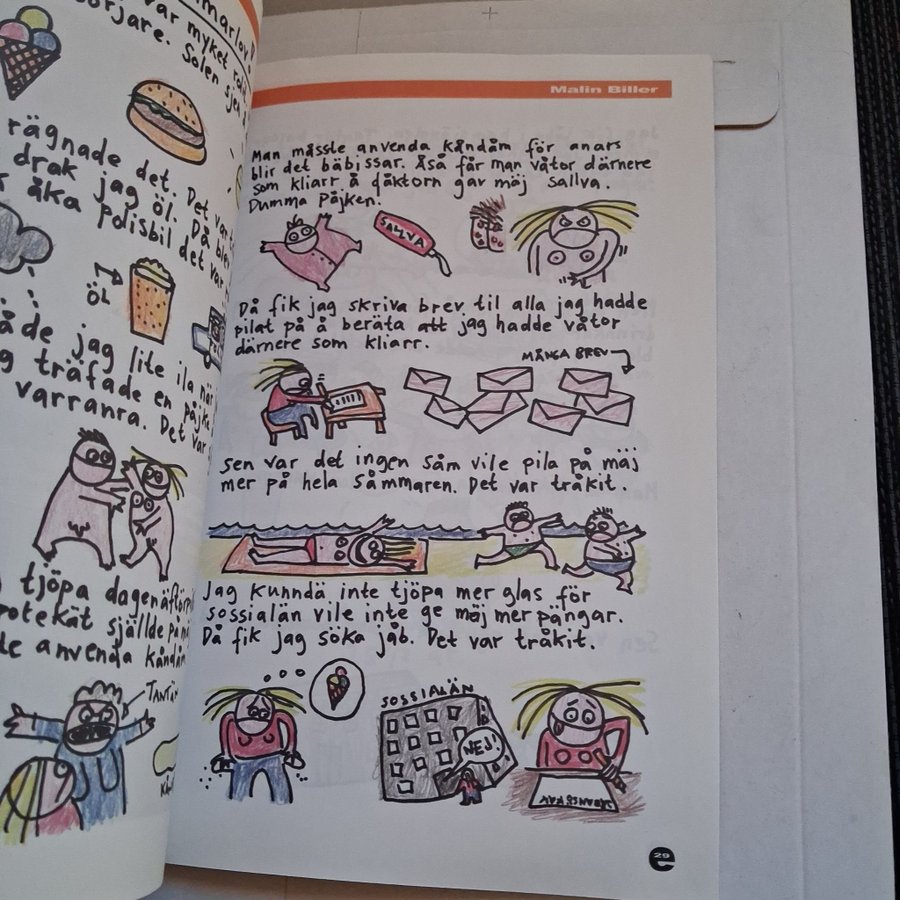 var myket
Solen sjen
rägnade det. Det
drak jag öl. Då blev
åka Polisbil det var
ÖL
jag lite ila när
träfade en påjke
varranra. Det var
tjöpa
själlde på
anvenda
Malin Biller
Man måsste anvenda kåndåm för anars
blir det bäbissar. Åså får man våtor därnere
som kliarr å dåktorn gav mäj sallva.
Dumma Påjken.
SALLVA
Då fik jag skriva brev til alla jag hadde
pilat på å beräta att jag hadde våtor
därnere som kliarr.
MÅNGA BREV
Sen var det ingen såm vile pila på mäj
mer på hela såmmaren. Det var tråkit.
Jag kunndä inte tjöpa mer glas för
sossialän vile inte ge mäj mer pängar.
Då fik jag söka jåb. Det var tråkit.
SOSSIALÄN
NEJ!
29